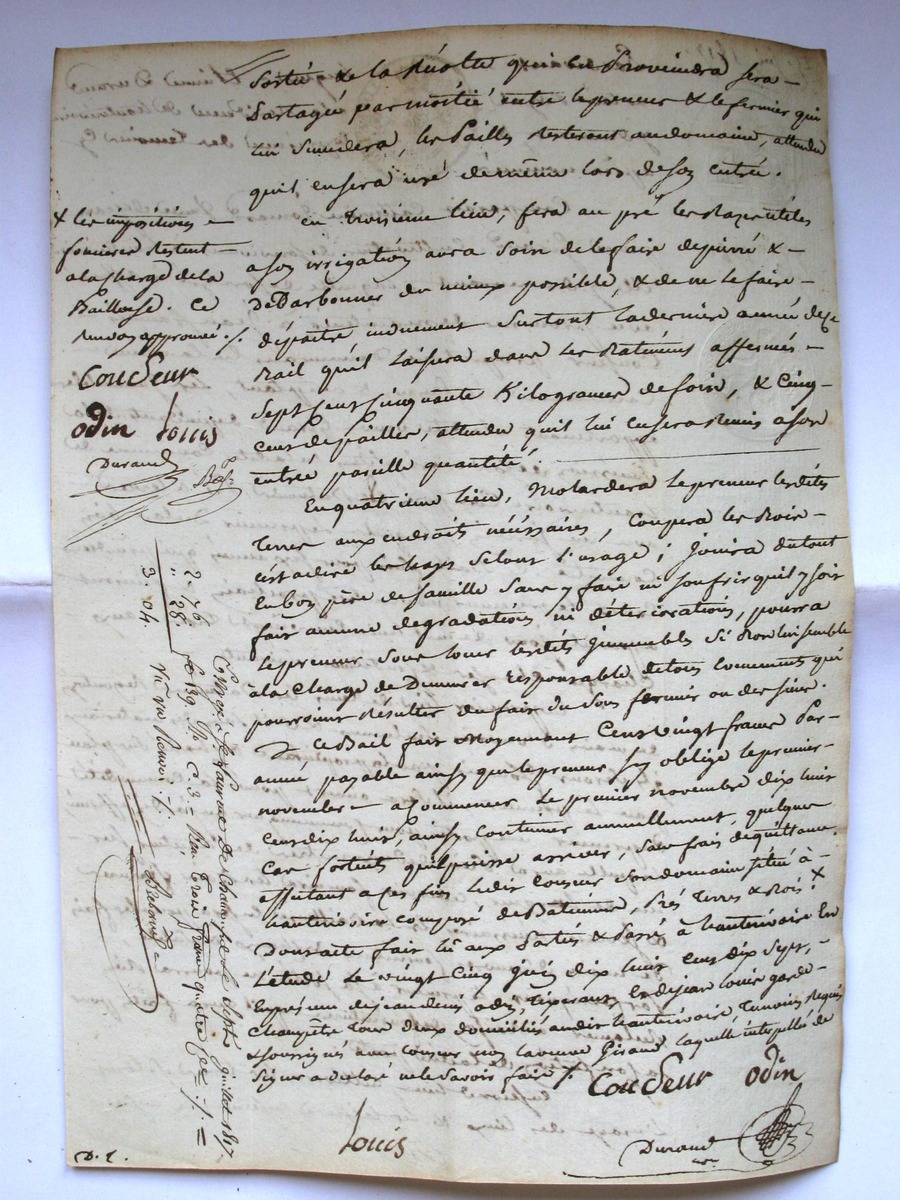 Sortië & de la Récolte qui en Proviendra sera
Partagée par moitié entre le preneur & le fermier qui
lui Succedera, les Pailles Resteront au domaine, attendu
quil en sera usé de même lors de son entrée.
en troisieme lieu, fera au pré les Razes utiles
a son irrigation aura Soin de le faire &
de du mieux possible, & de ne le faire
dépaitre induement Surtout la derniere année de ce
Bail quil laissera dans les Batimens affermés
Sept Cent Cinquante Kilogrames de foin, & Cinq
cent de pailles, attendu quil lui en sera Remis a son
entrée pareille quantité.
En quatrieme lieu, le preneur lesdites
terres aux endroits nécéssaires, Coupera les Bois
c'est adire les Selont l'usage ; Jouira du tout
En bon père de famille Sans y faire ni souffrir quil y soit
fait aucune degradations ni déteriorations, pourra
le preneur Sous louer lesdits Immeubles Si Bon lui semble
à la Charge de Demeurer Responsable de tous Evenements qui
pourroient Résulter du fait du Sous fermier ou des siens.
Ce Bail fait Moyennant Cent vingt francs Par
année payable ainsy que le preneur s'y oblige le premier
novembre a Commencer le premier novembre dix huit
Cent dix huit, ainsy Continuer annuellement, quelques
Cas fortuits quil puisse arriver, Sans frais de quittance
affectant a Ces fins ledit Couseur Son domaine Situé à
hauterivoire Composé de Batimens, Prés Terres & Bois X
Dont acte fait lû aux Partiés & Passé à hauterivoire En
L'étude Le vingt Cinq Juin dix huit Cent dix Sept,
En présence de jean denis odin, tixerant, Et de jean louis garde
Champêtre tous deux domiciliés audit hauterivoire, Temoins Requis
& soussignés avec Couseur non la veuve Giraud laquelle interpellée de
Signer a déclaré ne le Savoir faire ./.
Couseur odin
Louis
Durand
X les impositions
foncieres Restent
a la Charge de la
Bailleuse. Ce
Renvoy approuvé ./.
Couseur
odin Louis
Durand
2 . 76
" . 28
3 . 04.
le Sept Juillet 1817
Reçu Trois francs quatre ces ./.
D. L.